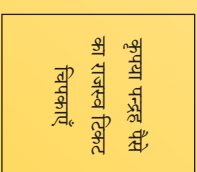 कृपया पन्द्रह पैसे
का राजस्व टिकट
चिपकाएँ